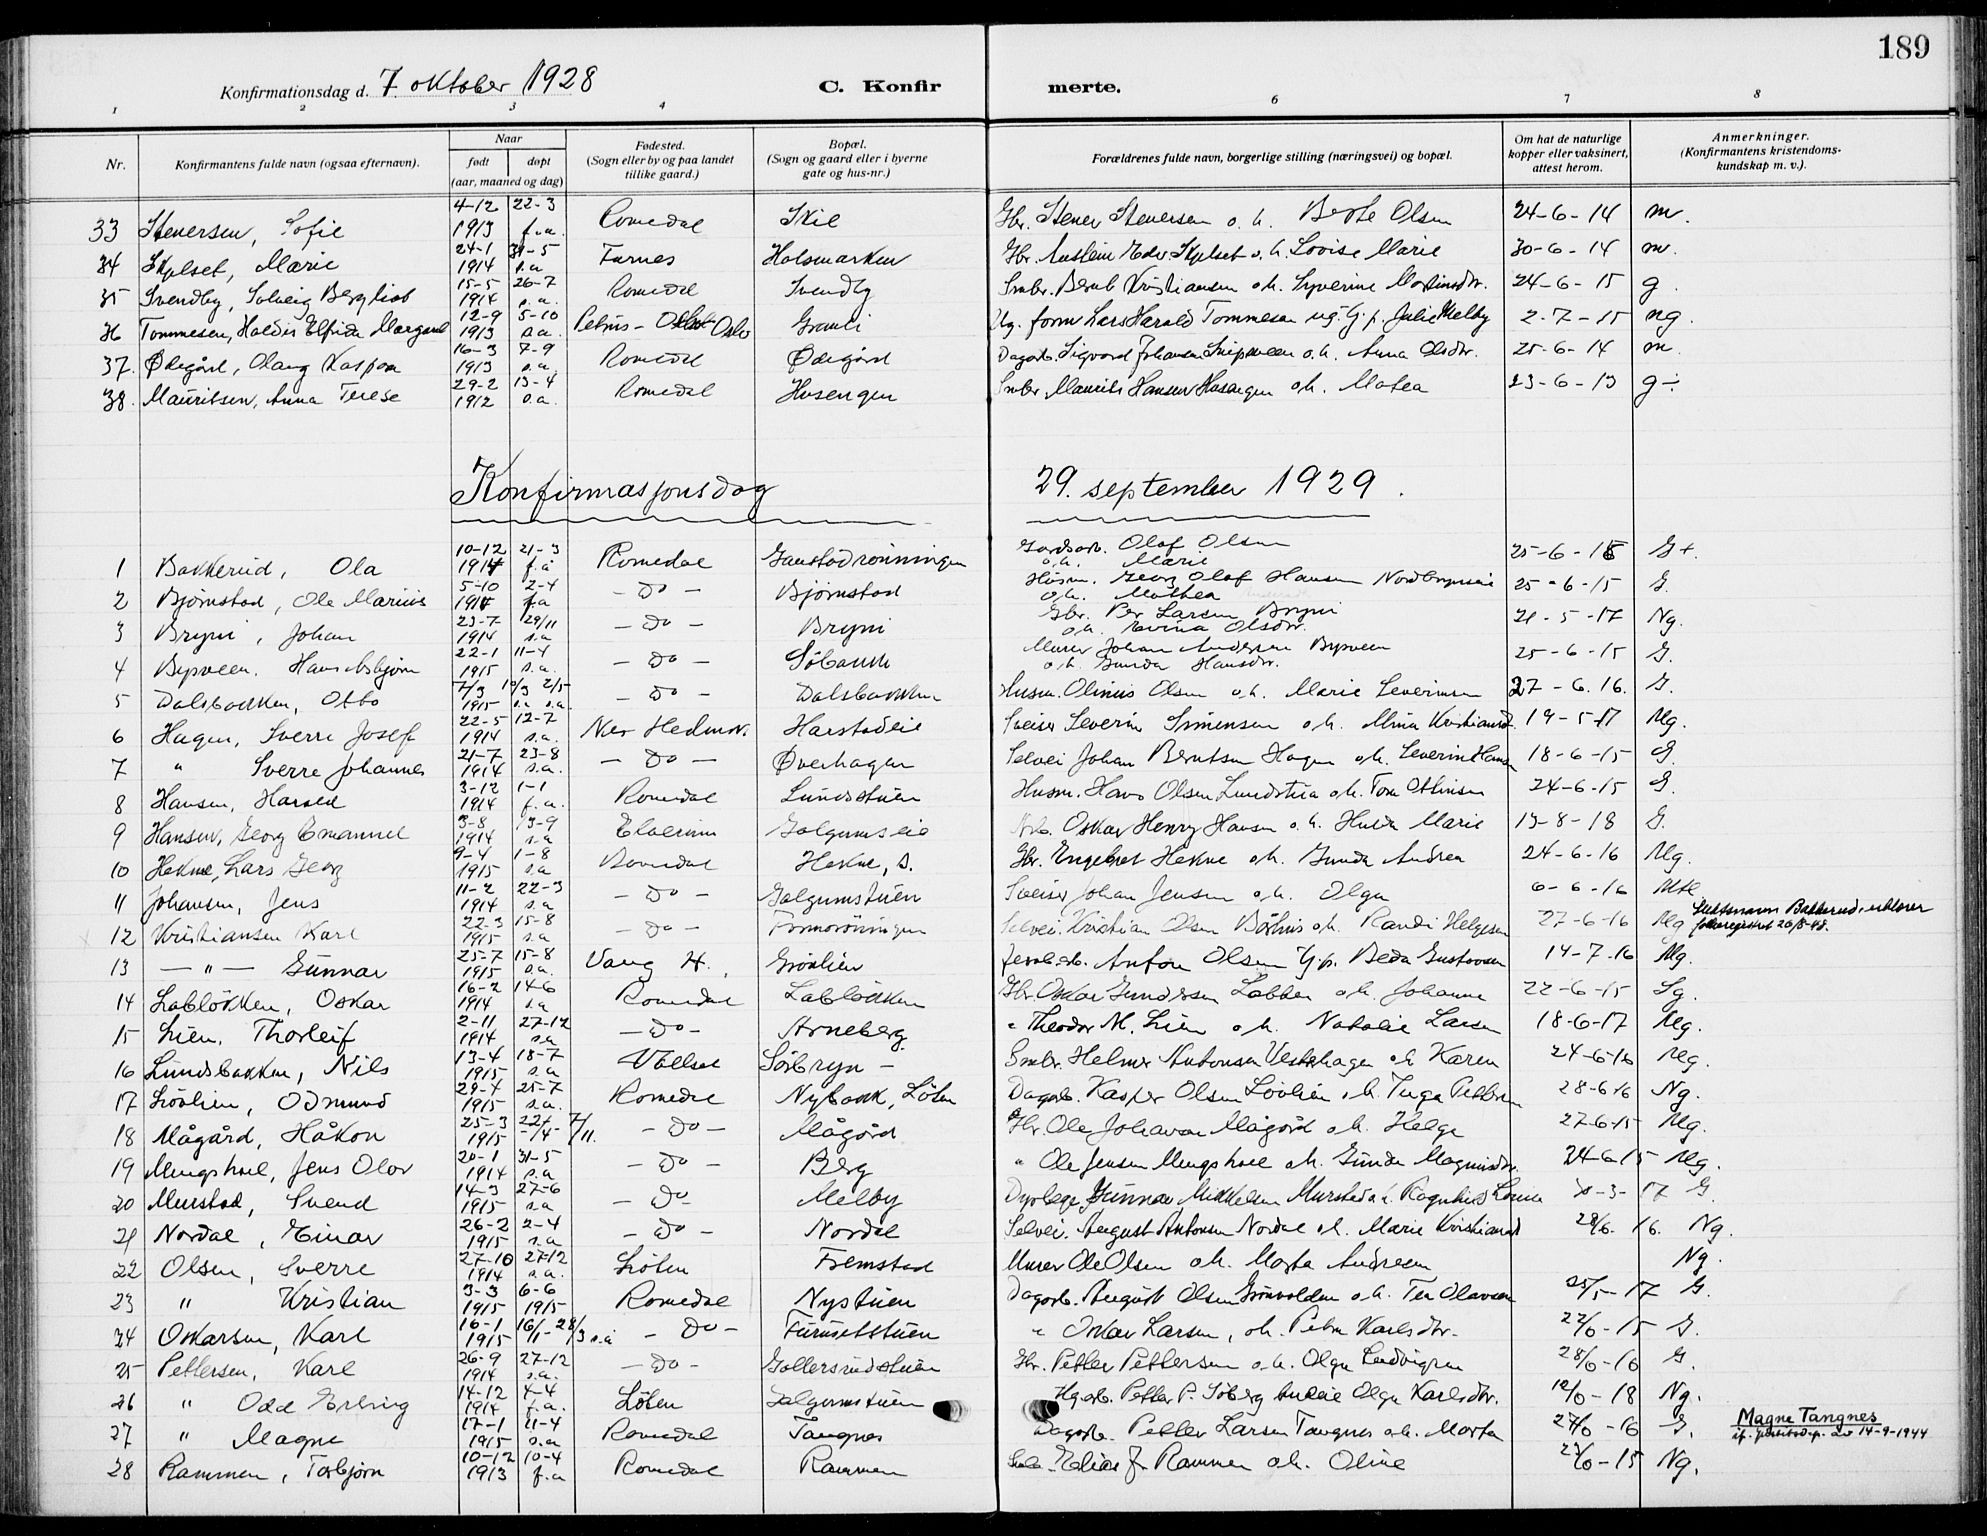 189
Konfirmationsdag d. 7. oktober 1928 C. Konfir merte.
1 2 3 4 6 7 8
Nr. Konfirmantens fulde navn (ogsaa efternavn). Naar født døpt (aar, maaned og dag) Fødested. (Sogn eller by og paa landet tillike gaard.) Bopæl. (Sogn og gaard eller i byerne gate og hus-nr.) Forældrenes fulde navn, borgerlige stilling (næringsvei) og bopæl. Om hat de naturlige kopper eller vaksinert, attest herom. Anmerkninger. (Konfirmantens kristendoms-kundskap m. v.).
33 Stenersen, Sofie 4-12 1913 22-3 f.a. Romedal Skil Gbr. Stener Stenersen o. h. Berte Olsen 24-6-14 m.
34 Skjelset, Marie 24-1 1914 31-5 s.a. Furnes Holsmarken Gbr. Edv. Skjelset o. h. Lovise Marie 30-6-14 m.
35 Svendby, Solveig Bergliot 15-5 1914 26-7 s.a. Romedal Svendby Smbr. Bernt Kristiansen o.h. Syverine Martinsdtr. 24-6-15 g.
36 Tommesen, Haldis Elfrida Margaret 12-9 1913 5-10 s.a. Petrus - Oslo Grauli Ug. form Lars Harald Tommesen ug. Gp. Julie Melby 2-7-15 ng.
37. Ødegård, Olaug Kaspara 16-3 1913 7-9 s.a. Romedal Ødegård Dagarb. Sigvard Johansen Snipsveen o.h. Anna Olsdtr. 25-6-14 m.
38. Mauritsen, Anna Terese 29-2 1912 13-4 s.a. Romedal Husengen Smbr. Maurits Hansen Husengen o.h. Matea 23-6-13 g÷
Konfirmasjonsdag 29. september 1929.
1 Bakkerud, Ola 10-12 1914 21-3 f.å Romedal Gaustadrønningen Gardsarb. Olaf Olsen o.h. Marie 25-6-15 G+.
2 Bjørnstad, Ole Marius 5-10 1914 2-4 f.a - Do - Bjørnstad Husm. Georg Olaf Hansen o.h. Mathea 25-6-15 G.
3 Bryni, Johan 23-7 1914 29/11 s.a. - Do - Bryni Gbr. Per Larsen Bryni o.h. Evina Olsdtr. 21-5-17 Ng.
4 Bypveen, Hans Asbjørn 22-1 1915 11-4 s.a. - Do - Søbakk Murer Johan Andersen Bypveen o.h. Gunda Hansdtr. 25-6-15 G.
5 Dalsbakken, Otto 7/3 1915 10/3 s.a. 2/5 s.a. - Do - Dalsbakken Husm. Olinius Olsen o.h. Marie Severinsen 27-6.16. G.
6 Hagen, Sverre Josef 22-5 1914 12-7 s.a. Nes Hedmark. Harstadeie Sveiser Severin Simensen o.h. Alma Kristiansd. 19-5-17 Mg.
7 " Sverre Johannes 21-7 1914 23-8 s.a. - Do - Øverhagen Selvei Johan Berntsen Hagen o.h. Severine Hansen 18-6-15 G.
8 Hansen, Harald 3-12 1914 1-1 f.a. Romedal Lundsstuen Husm. Hans Olsen Lundstua o.h. Tora Ottinsen 24-6-15 G.
9 Hansen, Georg Emanuel 3-8 1914 13-9 s.a Elverum Galgumseie Arb. Oskar Henry Hansen o.h. Hulda Marie 13-8-18 G.
10 Hekne, Lars Georg 9-4 1915 1-8 s.a Romedal Hekne, s. Gbr. Engebret Hekne o.h. Gunda Andrea 24-6-16 Mg.
11 Johansen, Jens 11-2 1914 22-3 s.a. - Do - Galgumstuen Sveiser Johan Jensen o.h. Olga 6-6-16 Mtl
12 Kristiansen Karl 22-3 1915 15-8 s.a - Do - Selvei. Kristian Olsen o.h. Randi Helgesen 27-6-16 Mg Slektsnavn Bakkerud, erklærer folkeregistret 20/8-48.
13 - " - Gunnar 25-7 1915 15-8 s.a. Vang H. Grønlien Anton Olsen Gp. Beda Gustavsen 14-7-16 Mg.
14 Labbløkken, Oskar 16-2 1914 14-6 s.a Romedal Labbløkken Gbr. Oskar Gundersen Labben o.h. Johanne 22-6-15 Sg.
15 Lien, Thorleif 2-11 1914 27-12 s.a - Do - Arneberg " Theodor M. Lien o.h. Natalie Larsen 18-6-17 Mg.
16 Lundsbakken, Nils 13-4 1915 18-7 s.a. Vallset Sørbryn - Smbr. Helmer Antonsen Vestehagen o.h. Karen 24-6-16 Mg.
17 Løvlien, Odmund 29-4 1915 25-7 s.a. Romedal Nybakk, Løten Dagarb. Kasper Olsen Løvlien o.h. Inga Pettersen 28-6-16 Ng.
18 Mågård, Håkon 25-3 1915 22/4 - 7/11. - Do - Mågård Gbr. Ole Johansen Mågård o.h. Helga 27-6-15 Mg.
19 Mengshoel, Jens Olav 20-1 1914 31-5 s.a - Do - Berg " Ole Jensen Mengshoel o.h. Gunda Magnusdtr. 24-6-15 Mg.
20 Murstad, Svend 14-3 1915 27-6 s.a - Do - Melby Dyrlege Gunnar Mikkelsen Murstad o.h. Ragnhild Louise 30-3-17 G.
21 Nordal, Einar 26-2 1915 2-4 s.a - Do - Nordal Selvei. August Antonsen Nordal o.h. Marie Kristiansd 28/6. 16. Ng.
22 Olsen, Sverre 27-10 1914 27-12 s.a. Løten Fremstad Murer Ole Olsen o.h. Marta Andresen Ng.
23 " Kristian 3-3 1915 6-6 1915 Romedal Nystuen Dagarb. August Olsen Grønvolden o.h. Tea Olavsen 25/5-17 G.
24 Oskarsen, Karl 16-1 1915 16/1 - 28/3 s.a - Do - Furusetstuen " Oskar Larsen, o.h. Petra Karlsdtr. 22/6-15 G.
25 Pettersen, Karl 26-9 1914 27-12 s.a. - Do - Gollersrudstuen Gbr. Petter Pettersen o.h. Olga Ludvigsen 28/6-16 G.
26 " Odd Erling 14-12 1914 4-4 f.a. Løten Galgumstuen Petter P. Søberg Olga Karlsdtr. 12/6-18 Ng.
27 " Magne 17-1 1915 11-4 s.a Romedal Tangnes Dagarb. Petter Larsen Tangnes o.h. Marta 27/6-16 G. Magne Tangnes if. 14-9-1944
28 Rammen, Torbjørn 10-12 1913 10-4 f.a Romedal Rammen Elias J. Rammen o.h. Oline 23/6-15 Ng.